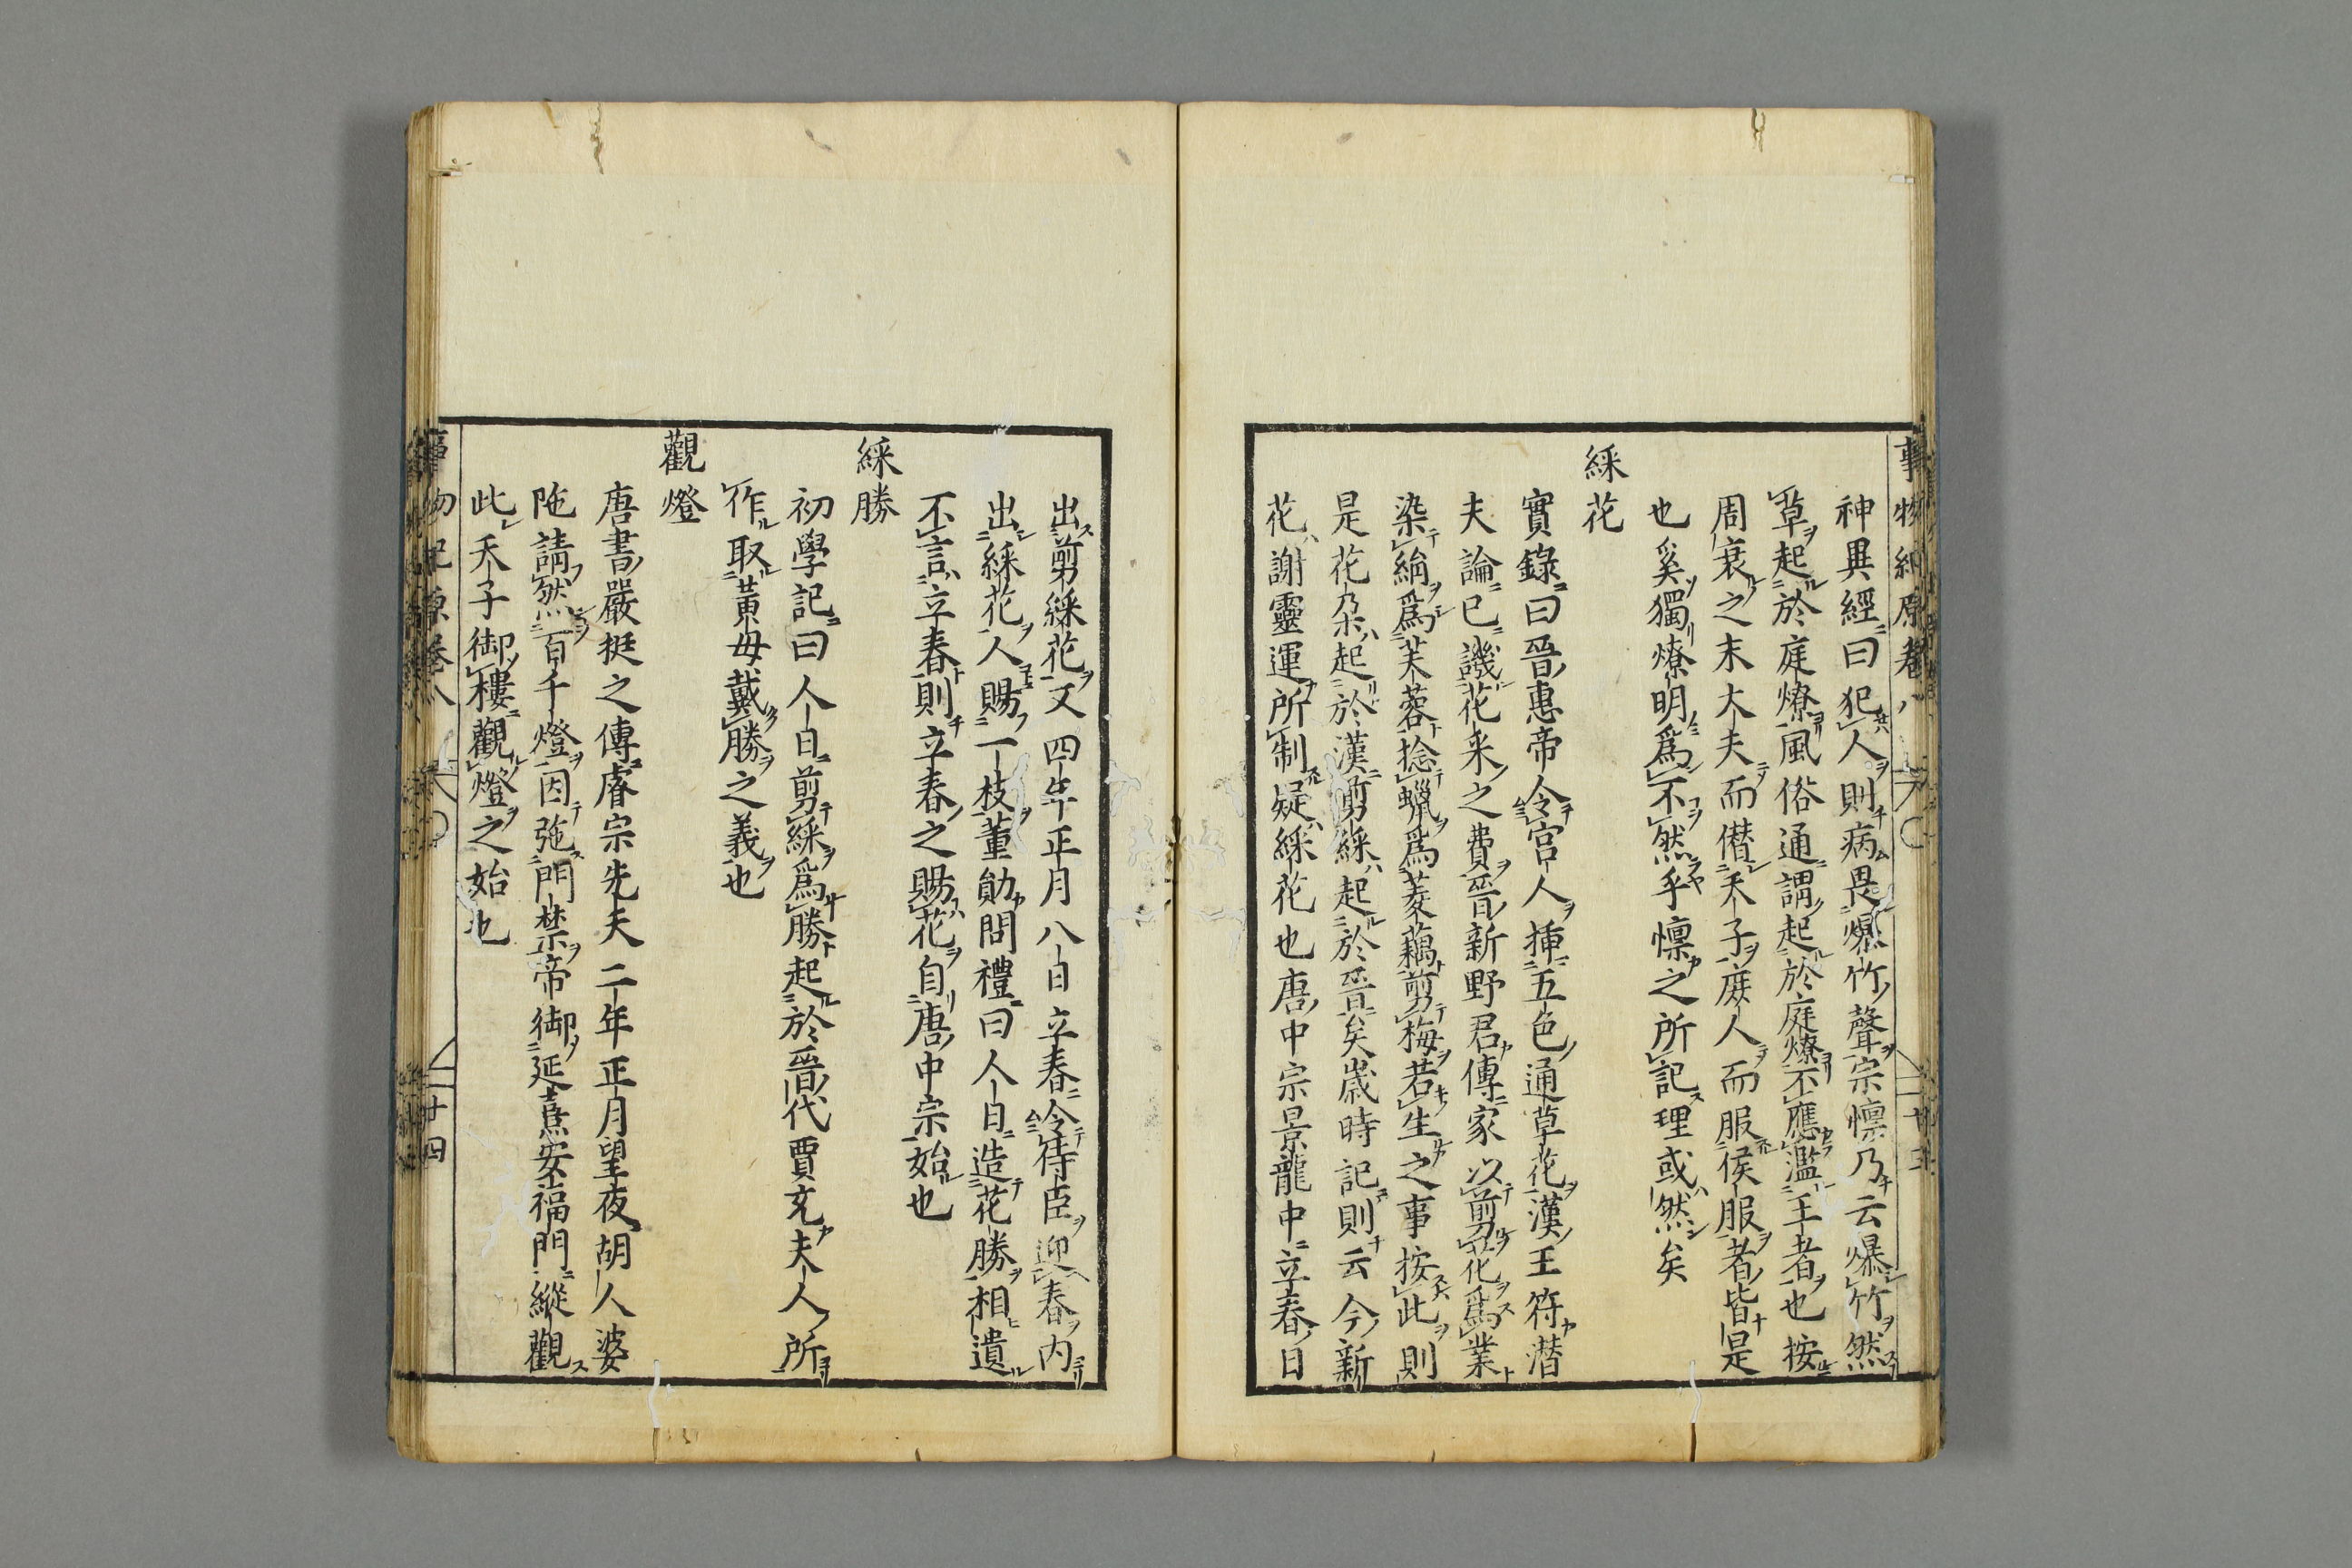 事物紀原卷八
神異經曰犯人則病畏爆竹聲宗懍乃云爆竹然
草起於庭燎風俗通謂起於庭燎不應濫王者也按
周衰之末大夫而僣天子庶人而服侯服者皆是
也奚獨燎明爲不然乎懍之所記理或然矣
綵花
實錄曰晉惠帝令宮人挿五色通草花漢王符潜
夫論已譏花采之費晉新野君傳家以剪花爲業
染絹爲芙蓉捻蠟爲菱藕剪梅若生之事按此則
是花朵起於漢剪綵起於晉矣歳時記則云今新
花謝靈運所制疑綵花也唐中宗景龍中立春日
出剪綵花又四年正月八日立春令侍臣迎春内
出綵花人賜一枝董勛問禮曰人日造花勝相遺
不言立春則立春之賜花自唐中宗始也
綵勝
初學記曰人日剪綵爲勝起於晉代賈充夫人所
作取黄母戴勝之義也
觀燈
唐書嚴挺之傳睿宗先天二年正月望夜胡人婆
陁請然百千燈因弛門禁帝御延熹安福門縱觀
此天子御樓觀燈之始也
事物紀原卷八
廿四